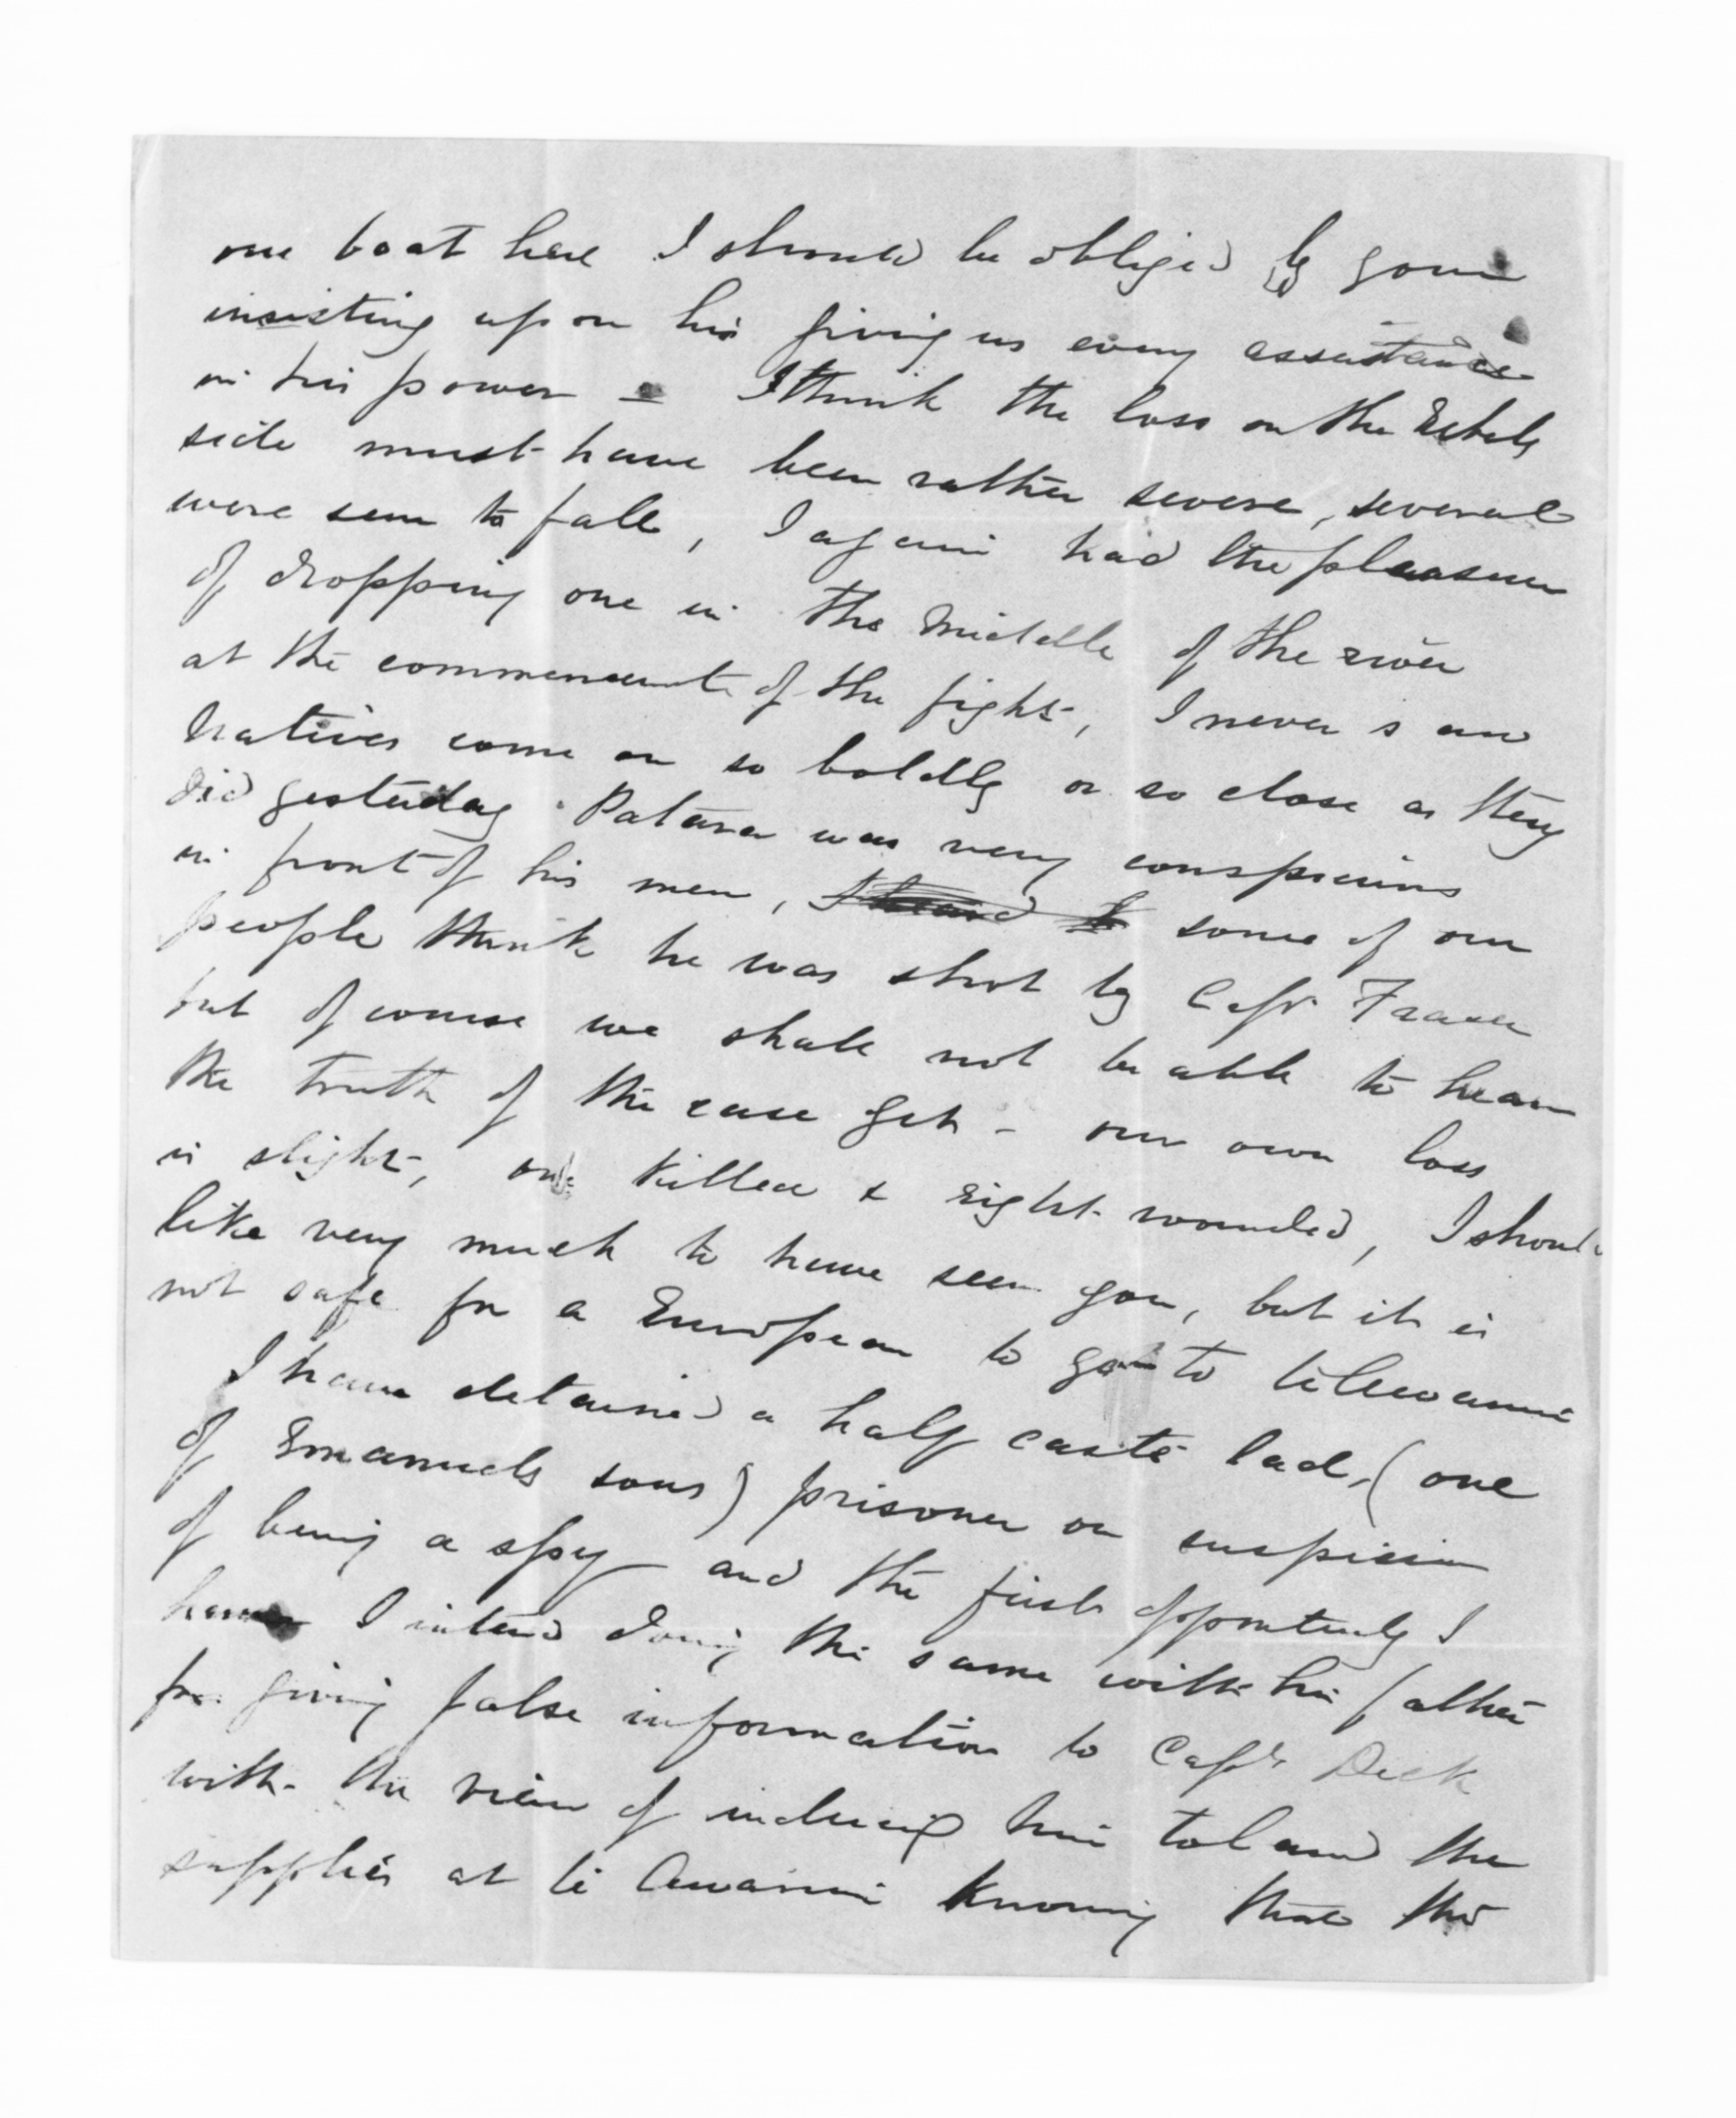 one boat here I should be obliged by your
insisting upon his giving us every assistance
in his power – I think the loss on the Rebels
side must have been rather severe, several
were seen to fall, I again had the pleasure
of dropping one in the middle of the river
at the commencement of the fight, I never saw
Natives come on so boldly or so close as they
did yesterday Patara was very conspicuous
in front of his men, some of our
people think he was shot by Capt Fraser
but of course we shall not be able to hear
the truth of the case yet – our own loss
is slight, one killed & eight wounded, I should
like very much to have seen you, but it is
not safe for a European to go to te Awanui
I have detained a half caste lad, (one
of Emanuels sons) prisoner on suspicion
of being a spy and the first opportunity I
have I intend doing the same with his father
for giving false information to Capt Dick
with the view of inducing him to land the
supplies at te Awanui knowing that the